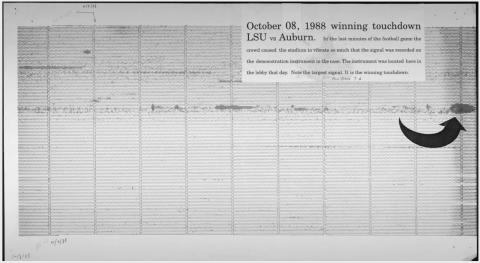 October 08, 1988 winning touchdown
LSU vs Auburn. In the last minutes of the football game the
crowd caused the stadium to vibrate so much that the signal was recorded on
the demonstration instrument in the case. The instrument was located here in
the lobby that day. Note the largest signal. It is the winning touchdown.